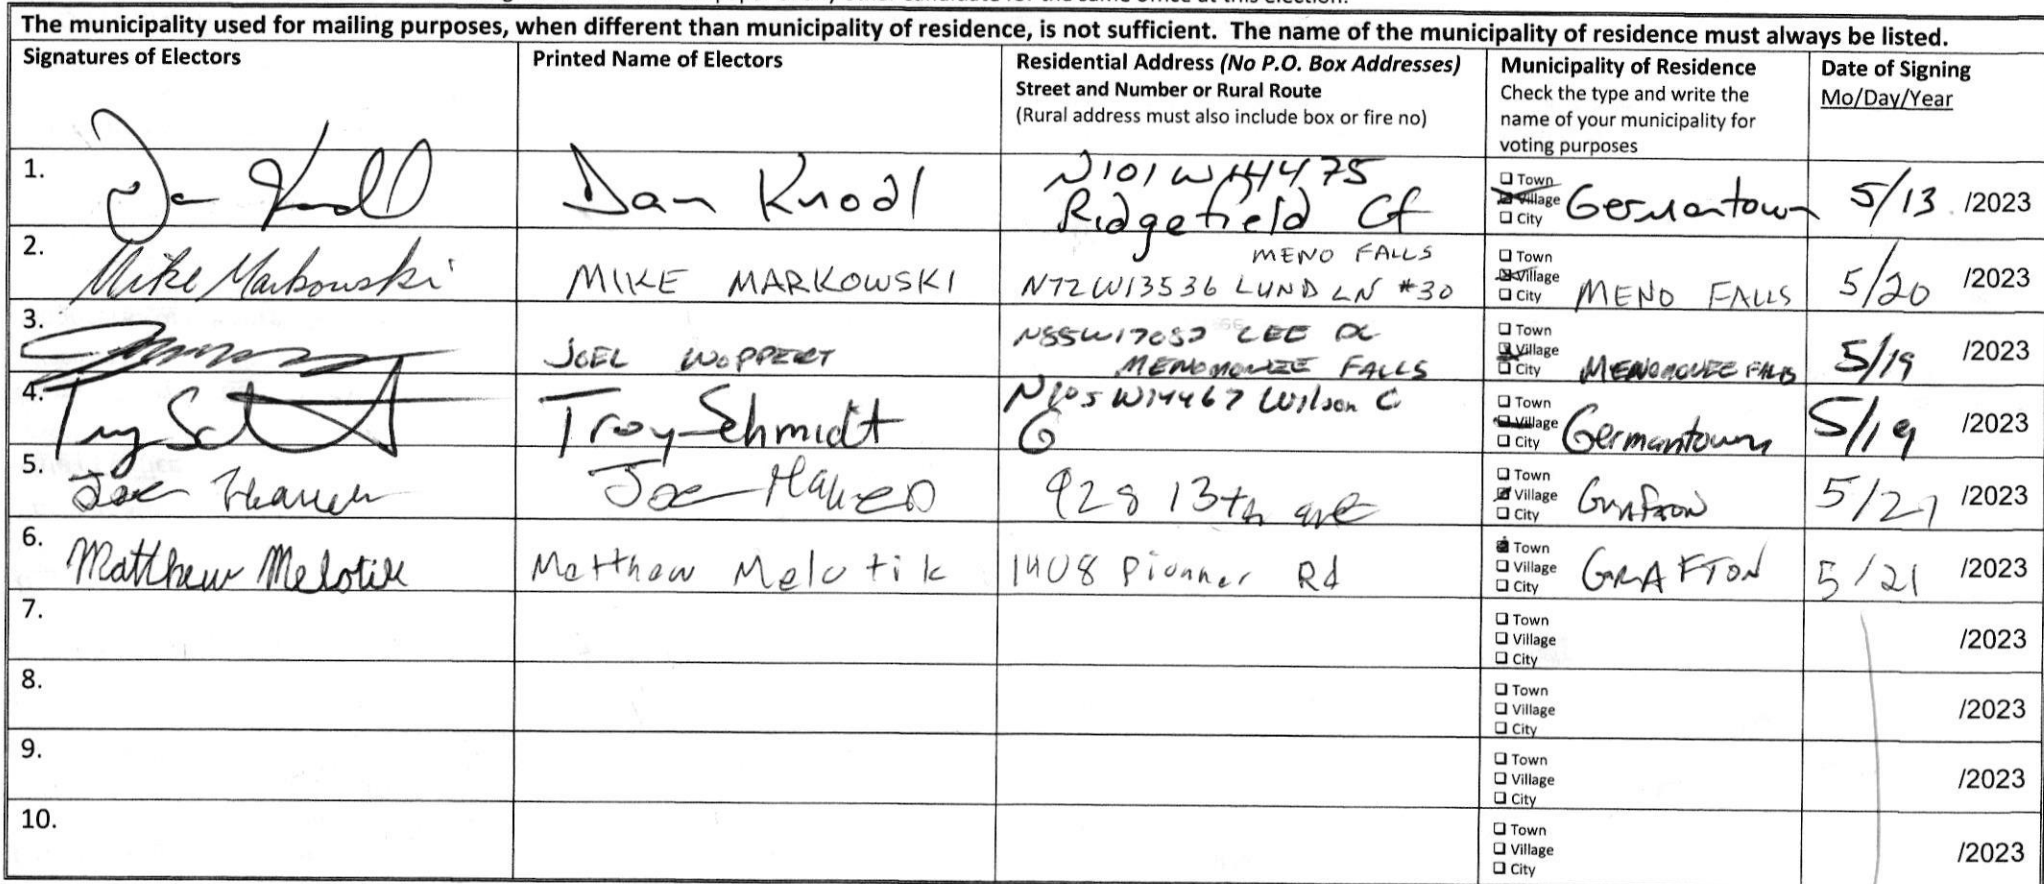 The municipality used for mailing purposes, when different than municipality of residence, is not sufficient. The name of the municipality of residence must always be listed.
Signatures of Electors
Printed Name of Electors
Residential Address (No P.O. Box Addresses)
Street and Number or Rural Route
(Rural address must also include box or fire no)
Municipality of Residence
Check the type and write the
name of your municipality for
voting purposes
Date of Signing
Mo/Day/Year
1.
Dan Knodl
Dan Knodl
N101W14475
Ridgefield Ct
Town
Village
City
Germantown
5/13 /2023
2.
Mike Markowski
MIKE MARKOWSKI
MENO FALLS
N72W13536 LUND LN #30
Town
Village
City
MENO FALLS
5/20 /2023
3.
JOEL WOPPERT
LEE
MENOMONEE FALLS
Town
Village
City
MENOMONEE FALLS
5/19 /2023
4.
Troy Schmidt
N105W14467 Wilson C
G
Town
Village
City
Germantown
5/19 /2023
5.
Joe
Joe
928 13th ave
Town
Village
City
Grafton
5/21 /2023
6.
Matthew Melotik
Matthew Melotik
1408 Pionner Rd
Town
Village
City
GRAFTON
5/21 /2023
7.
Town
Village
City
/2023
8.
Town
Village
City
/2023
9.
Town
Village
City
/2023
10.
Town
Village
City
/2023